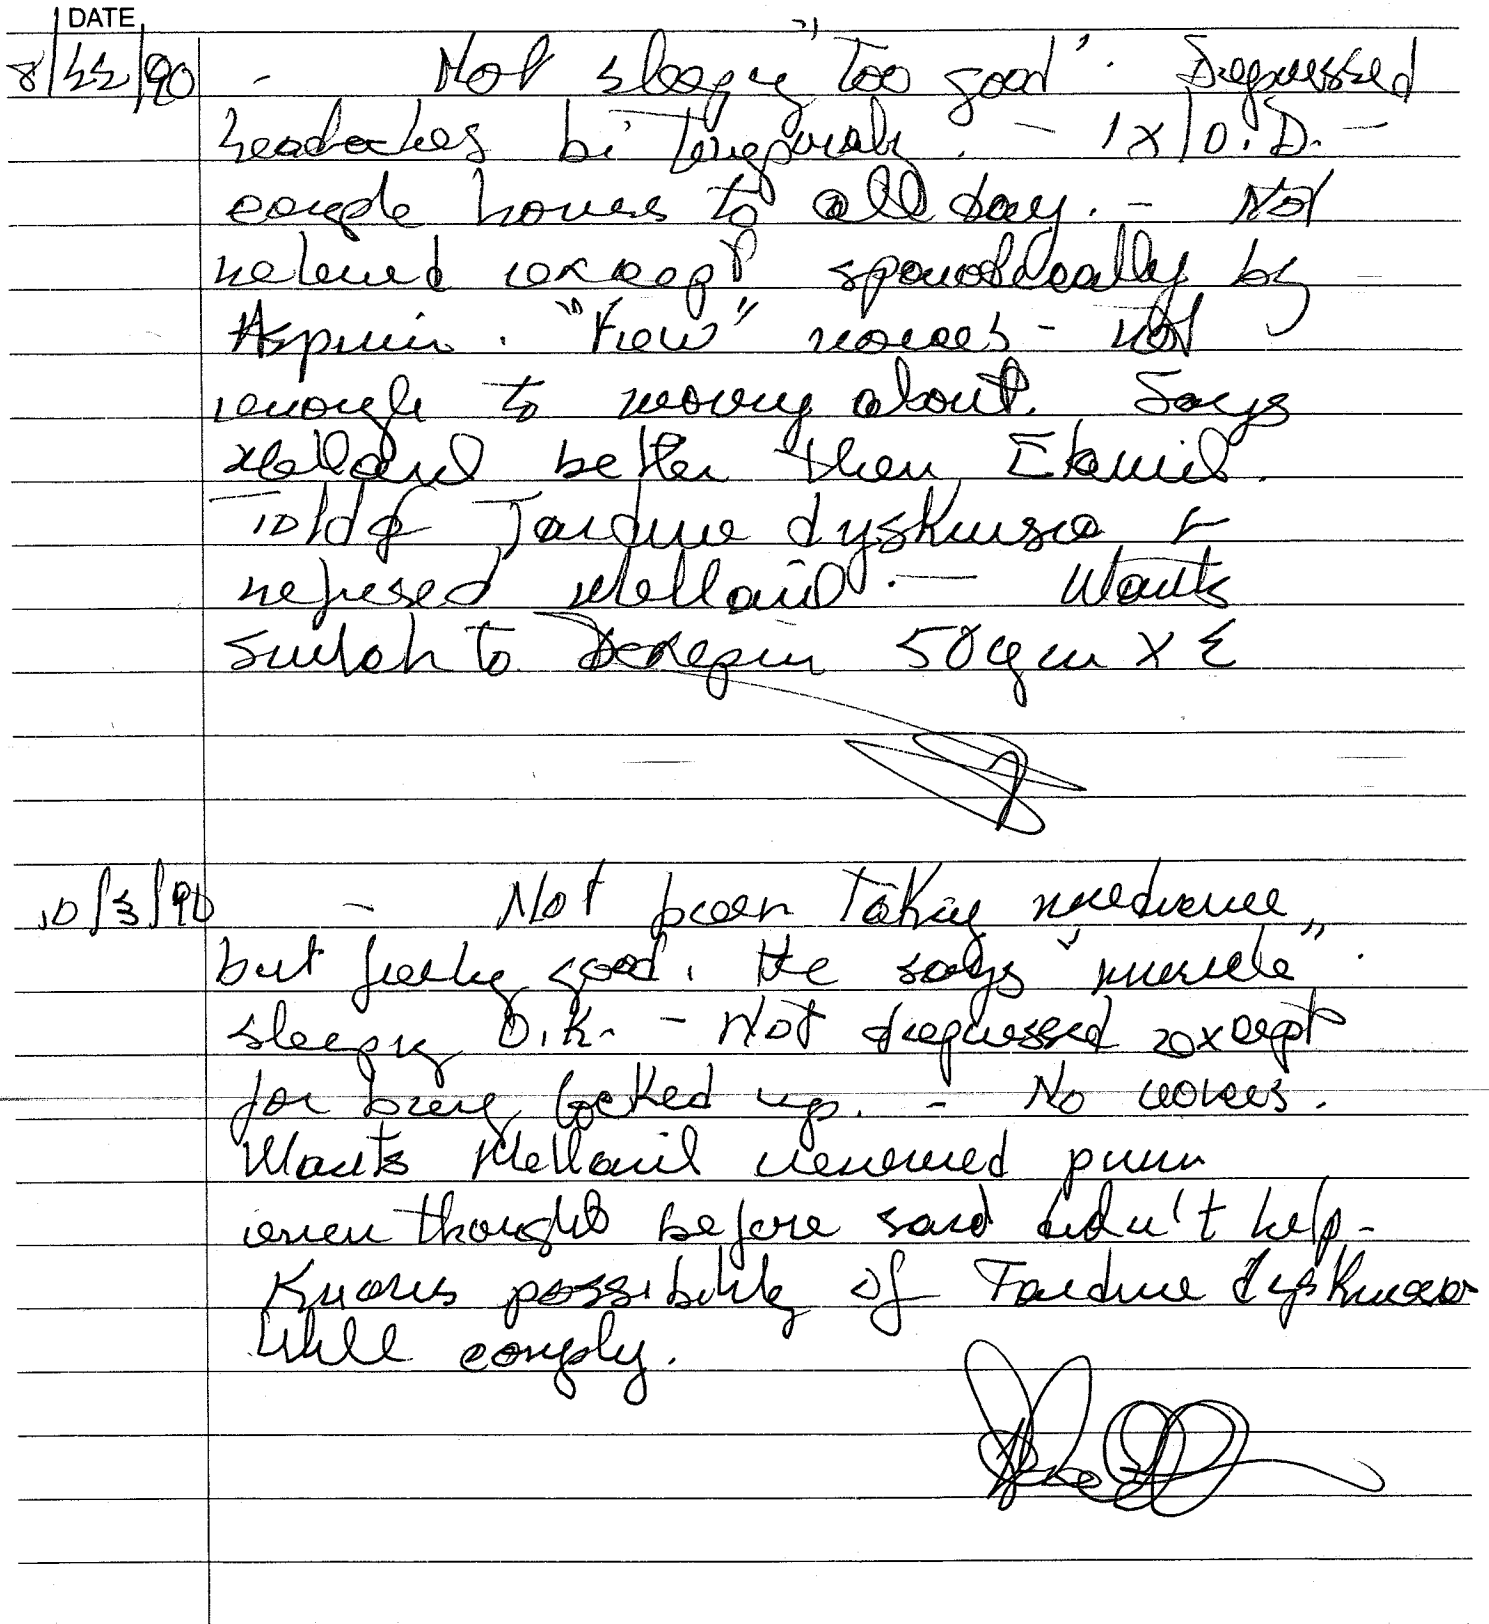 DATE
8/22/90 - Not sleeping "too good". Depressed
headaches bi temporaly. - 1 x / O.D. -
couple hours to all day. - Not
relieved except sporadically by
Aspirin. "Few" voices - not
enough to worry about. Says
Mellaril better then Elavil.
Told of Tardive dyskinesia &
refused Mellaril. - Wants
switch to Doxepin 50
10/3/90 - Not been taking medicine
but feeling good. He says "miracle".
sleeping O.K. - Not depressed except
for being locked up. - No voices.
Wants Mellaril renewed
even though before said didn't help -
Knows possibility of Tardive dyskinesia
Will comply.